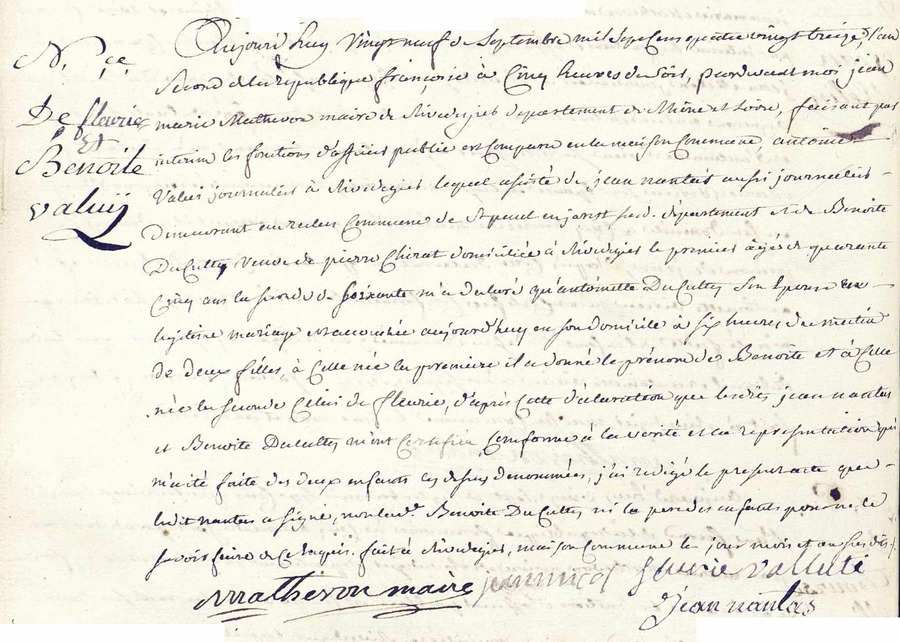 N.ce
De fleurie
Et
Benoite
Valuy
Aujourd'huy Vingt neuf de Septembre mil Sept Cens quatre vingt treize, l'an
Second de la republique françoise à Cinq heures du Soir, pardevant moi jean
marie Matheron maire de Rivedegies departement de Rhône et Loire, faisant par
interim les fonctions d'officier public est Comparu en la maison Commune, antoine
Valuis journalier à Rivedegies lequel assisté de jean nantas aussi journalier
Demeurant au reclus Commune de St paul en jarest susd. département et de Benoite
Du Cultty Veuve de pierre Chirat domiciliée à Rivedegies le premier âgé de quarante
Cinq ans la seconde de Soixante m'a declaré qu'antoinette Du Cultty Son Epouse en
legitime mariage est accouchée aujourd'huy en son domicile à six heures du matin
de deux filles, à Celle née la premiere il a donné le prénom de Benoite et à Celle
née la seconde Celui de fleurie, d'après Cette déclaration que lesdits jean nantas
et Benoite Du Cultty, m'ont Certifiée Conforme à la verité et la representation qui
m'a été faite des deux enfants Cy dessus denommées, j'ai redigé le present acte que
ledit nantas a signé, non lad. Benoite Du Cultty ni le pere des enfants pour ne le
savoir faire de Ce requis. fait à Rivedegies, maison Commune les jour mois et an susdits
Matheron maire fleurie Vallule
Jean nantas